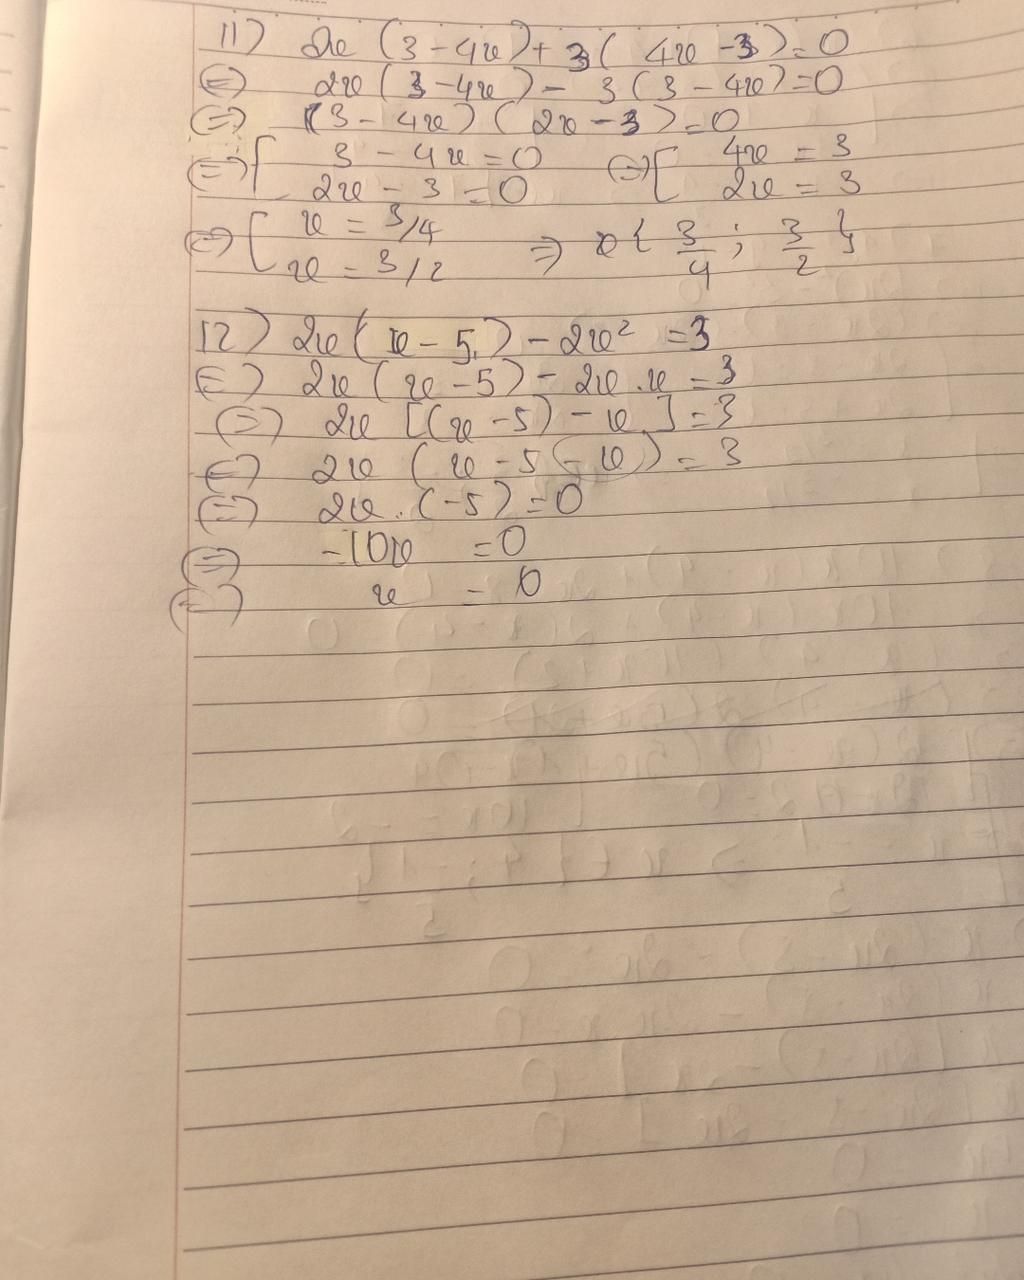 11) 2x (3 - 4x) + 3 ( 4x - 3) = 0
⇔ 2x (3 - 4x) - 3 (3 - 4x) = 0
⇔ (3 - 4x) (2x - 3) = 0
⇔ [ 3 - 4x = 0 ⇔ [ 4x = 3
2x - 3 = 0 2x = 3
⇔ [ x = 3/4
x = 3/2 ⇒ x { 3/4 ; 3/2 }
12) 2x (x - 5) - 2x² = 3
⇔ 2x (x - 5) - 2x . x = 3
⇔ 2x [(x - 5) - x ] = 3
⇔ 2x (x - 5 - x) = 3
⇔ 2x . (-5) = 0
⇔ -10x = 0
⇔ x = 0